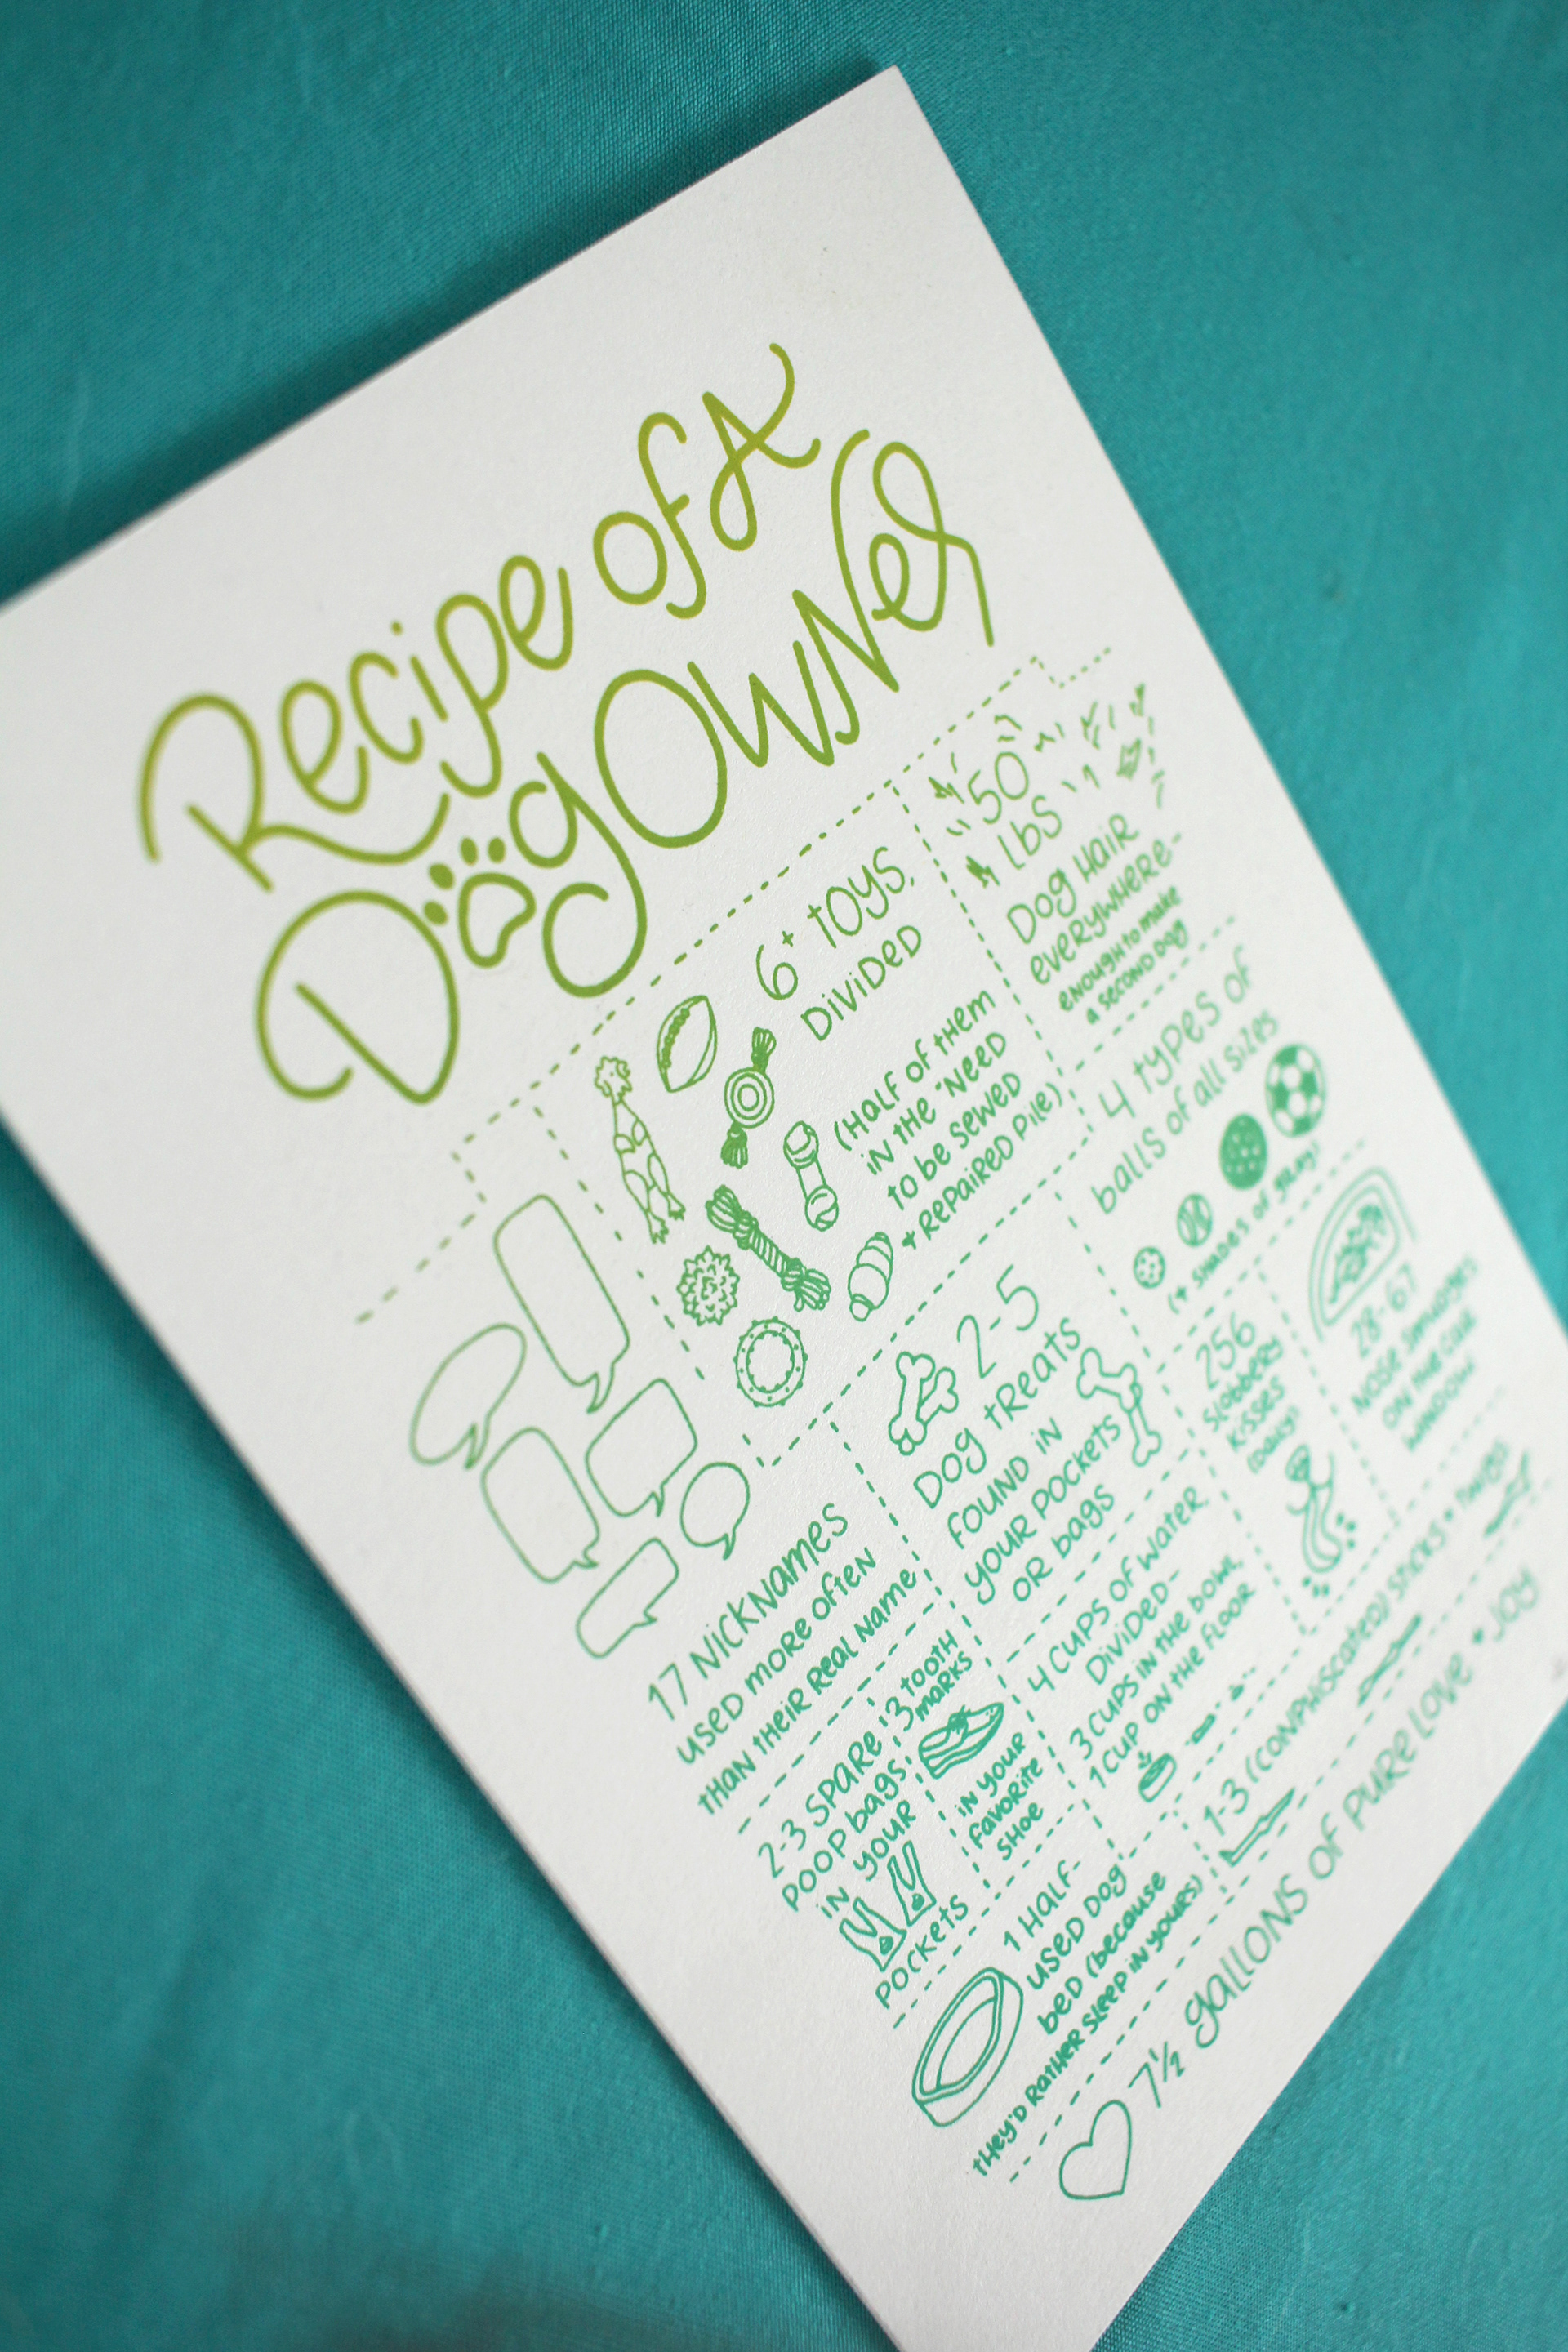 Recipe of A
Dog Owner
17 Nicknames
used more often
than their real name
6+ toys,
divided
(half of them
in the "need
to be sewed
+ repaired pile)
50
lbs
dog hair
everywhere-
enough to make
a second dog
4 types of
balls of all sizes
(+ shades of gray)
2-5
dog treats
found in
your pockets
or bags
256
slobbery
kisses
(daily)
28-67
nose smudges
on the car
window
2-3 spare
poop bags
in your
pockets
3 tooth
marks
in your
favorite
shoe
4 cups of water,
divided-
3 cups in the bowl,
1 cup on the floor
1 half-
used dog
bed (because
they'd rather sleep in yours)
1-3 (conphiscated) sticks + twigs
7 1/2 gallons of pure love + joy